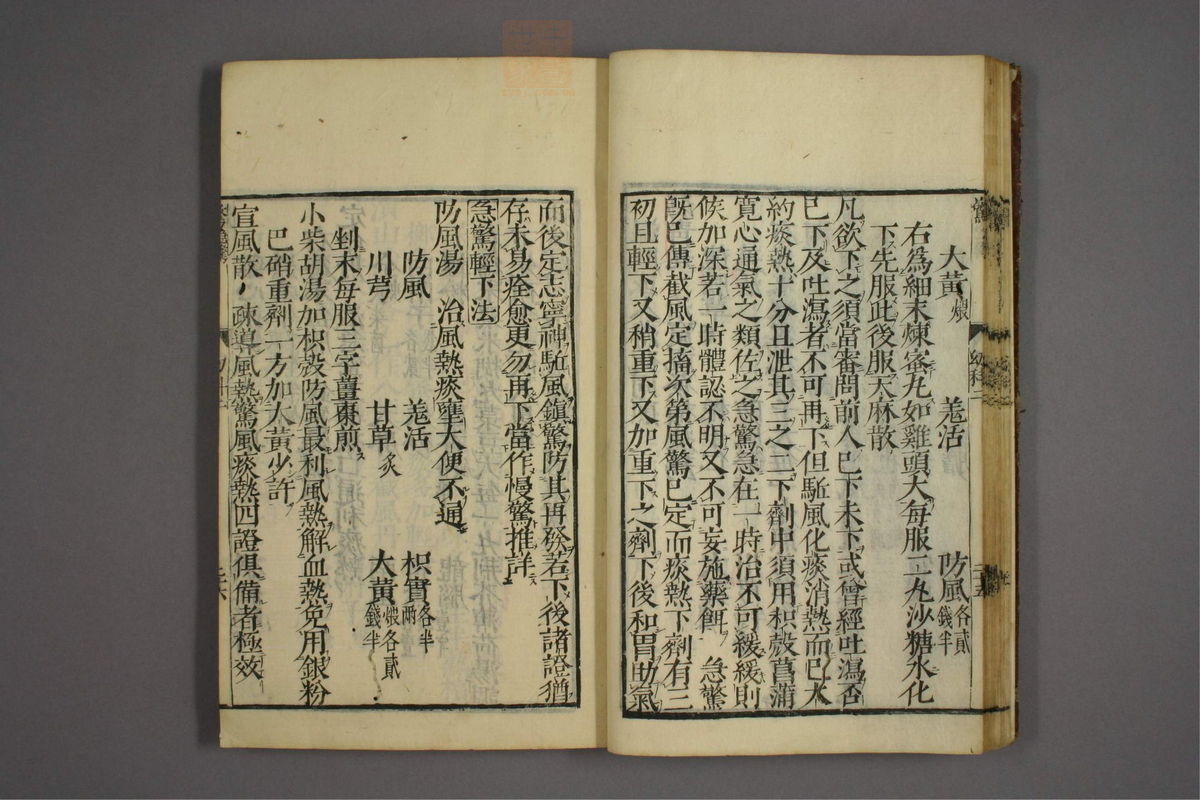 大黃煨　羗活　防風各貳錢半
右爲細末煉蜜丸如雞頭大每服二丸沙糖水化
下先服此後服天麻散
凡欲下之須當審問前人已下未下或曾經吐瀉否
已下及吐瀉者不可再下但駈風化痰消熱而已大
約痰熱十分且泄其三之二下劑中須用枳殼菖蒲
寬心通氣之類佐之急驚急在一時治不可緩緩則
候加深若一時體認不明又不可妄施藥餌　急驚
旣已傳截風定搐次第風驚已定而痰熱下劑有三
初且輕下又稍重下又加重下之劑下後和胃助氣
而後定志寧神駈風鎮驚防其再發若下後諸證猶
存未易痊愈更勿再下當作慢驚推詳
急驚輕下法
防風湯　治風熱痰壅大便不通
防風　羗活　枳實各半兩
川芎　甘草炙　大黃煨各貳錢半
剉末每服三字薑棗煎
小柴胡湯加枳殼防風最利風熱解血熱免用銀粉
巴硝重劑一方加大黃少許
宣風散　疎導風熱驚風痰熱四證俱備者極效